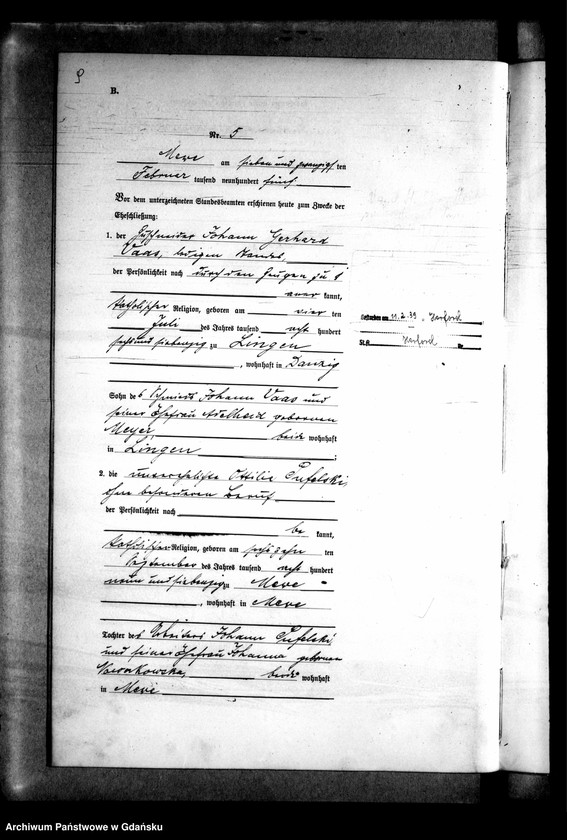 9
B.
Nr. 5
Mewe am sieben und zwanzigsten
Februar tausend neunhundert fünf
Vor dem unterzeichneten Standesbeamten erschienen heute zum Zwecke der
Eheschließung:
1. der Zuschneider Johann Gerhard
Vaas, ledigen Standes,
der Persönlichkeit nach durch den Zeugen zu 1
aner kannt,
katholischer Religion, geboren am vier ten
Juli des Jahres tausend acht hundert
sechs und siebenzig zu Lingen
, wohnhaft in Danzig
Sohn des Schmieds Johann Vaas und
seiner Ehefrau Adelheid geborenen
Meyer, beide wohnhaft
in Lingen ;
2. die unverehelichte Ottilie
ohne besonderen Beruf
der Persönlichkeit nach
be kannt,
katholischer Religion, geboren am sechszehn ten
September des Jahres tausend acht hundert
neun und siebenzig zu Mewe
, wohnhaft in Mewe
Tochter des Arbeiters Johann
und seiner Ehefrau Johanna geborenen
beide wohnhaft
in Mewe
Gestorben am 11.2.39 Herford
St.A. Herford Nr.
Archiwum Państwowe w Gdańsku